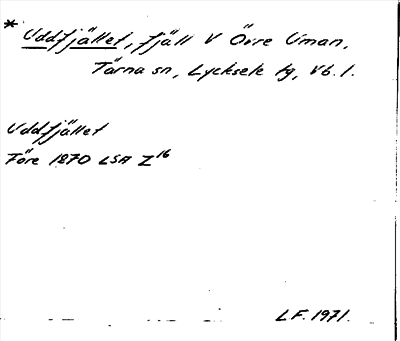 * Uddfjället, fjäll V Övre Uman,
Tärna sn, Lycksele lg, Vb. l.
Uddfjället
Före 1870 LSA Z16
L.F. 1971.